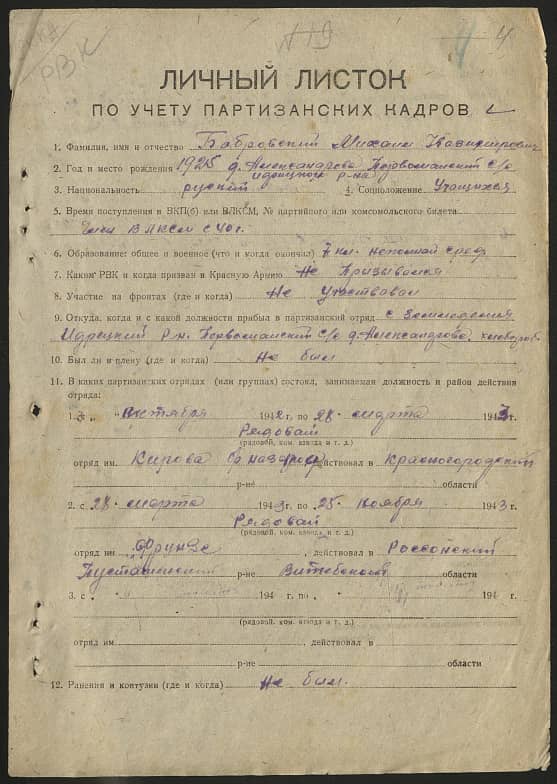 РВК
4
ЛИЧНЫЙ ЛИСТОК
ПО УЧЕТУ ПАРТИЗАНСКИХ КАДРОВ
1. Фамилия, имя и отчество Бобровский Михаил Казимирович
2. Год и место рождения 1925 д. Александрово Первомайский с/с
Идрицкого р-на
3. Национальность руский 4. Соцположение Учащихся
5. Время поступления в ВКП(б) или ВЛКСМ, № партийного или комсомольского билета
Член ВЛКСМ с 40 г.
6. Образование: общее и военное (что и когда окончил) 7 кл. неполной сред
7. Каким РВК и когда призван в Красную Армию Не Призывался
8. Участие на фронтах (где и когда) Не Участвовал
9. Откуда, когда и с какой должности прибыл в партизанский отряд с
Идрецкий р-н. Первомайский с/с д. Александрово, хлебороб
10. Был ли в плену (где и когда) Не был
11. В каких партизанских отрядах (или группах) состоял, занимаемая должность и район действия
отряда:
1. с Октября 1942 г. по 28 марта 1943 г.
Рядовой
(рядовой, ком. взвода и т. д.)
отряд им. Кирова действовал в Красногородский
р-не области
2. с 28 марта 1943 г. по 25 Ноября 1943 г.
Рядовой
(рядовой, ком. взвода и т. д.)
отряд им Фрунзе, действовал в Россонский
Пустошкинский р-не Витебской области
3. с 194 г. по 194 г.
(рядовой, ком. взвода и т. д.)
отряд им , действовал в
р-не области
12. Ранения и контузии (где и когда) Не был.